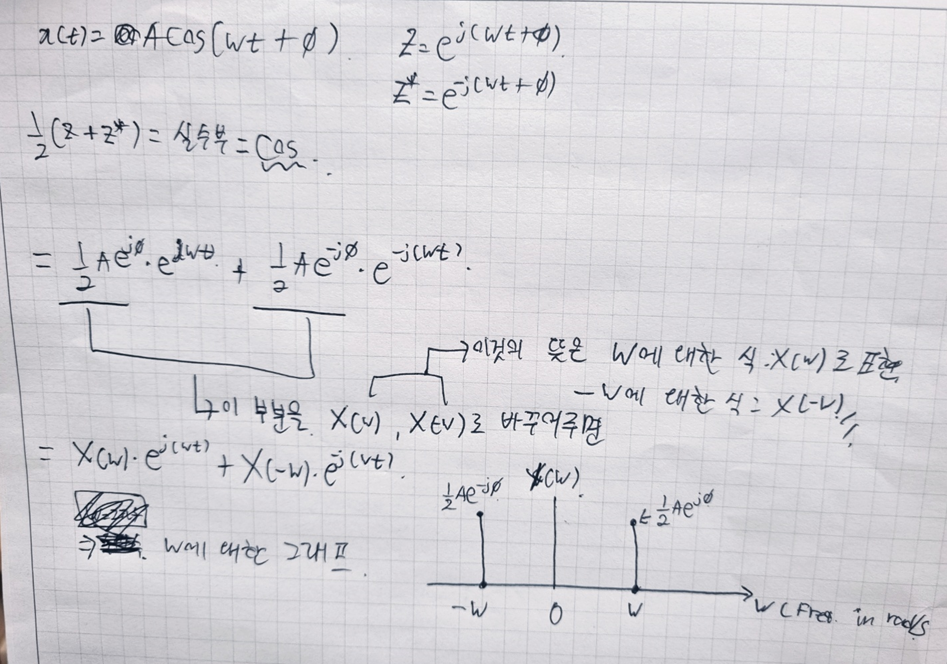 x(t) = A Cos(wt + ∅)
Z = e^{j(wt+∅)}
Z* = e^{-j(wt+∅)}
1/2 (Z + Z*) = 실수부 = Cos.
= 1/2 Ae^{j∅} · e^{jwt} + 1/2 Ae^{-j∅} · e^{-j(wt)}
→ 이것의 뜻은 W에 대한 식 · X(w)로 표현
-W에 대한 식 = X(-w)
↳ 이 부분을 X(w), X(-w)로 바꾸어주면
= X(w) · e^{j(wt)} + X(-w) · e^{-j(wt)}
1/2 Ae^{-j∅} X(w) ← 1/2 Ae^{j∅}
⇒ W에 대한 그래프
-W 0 W W (Freq. in rad/s